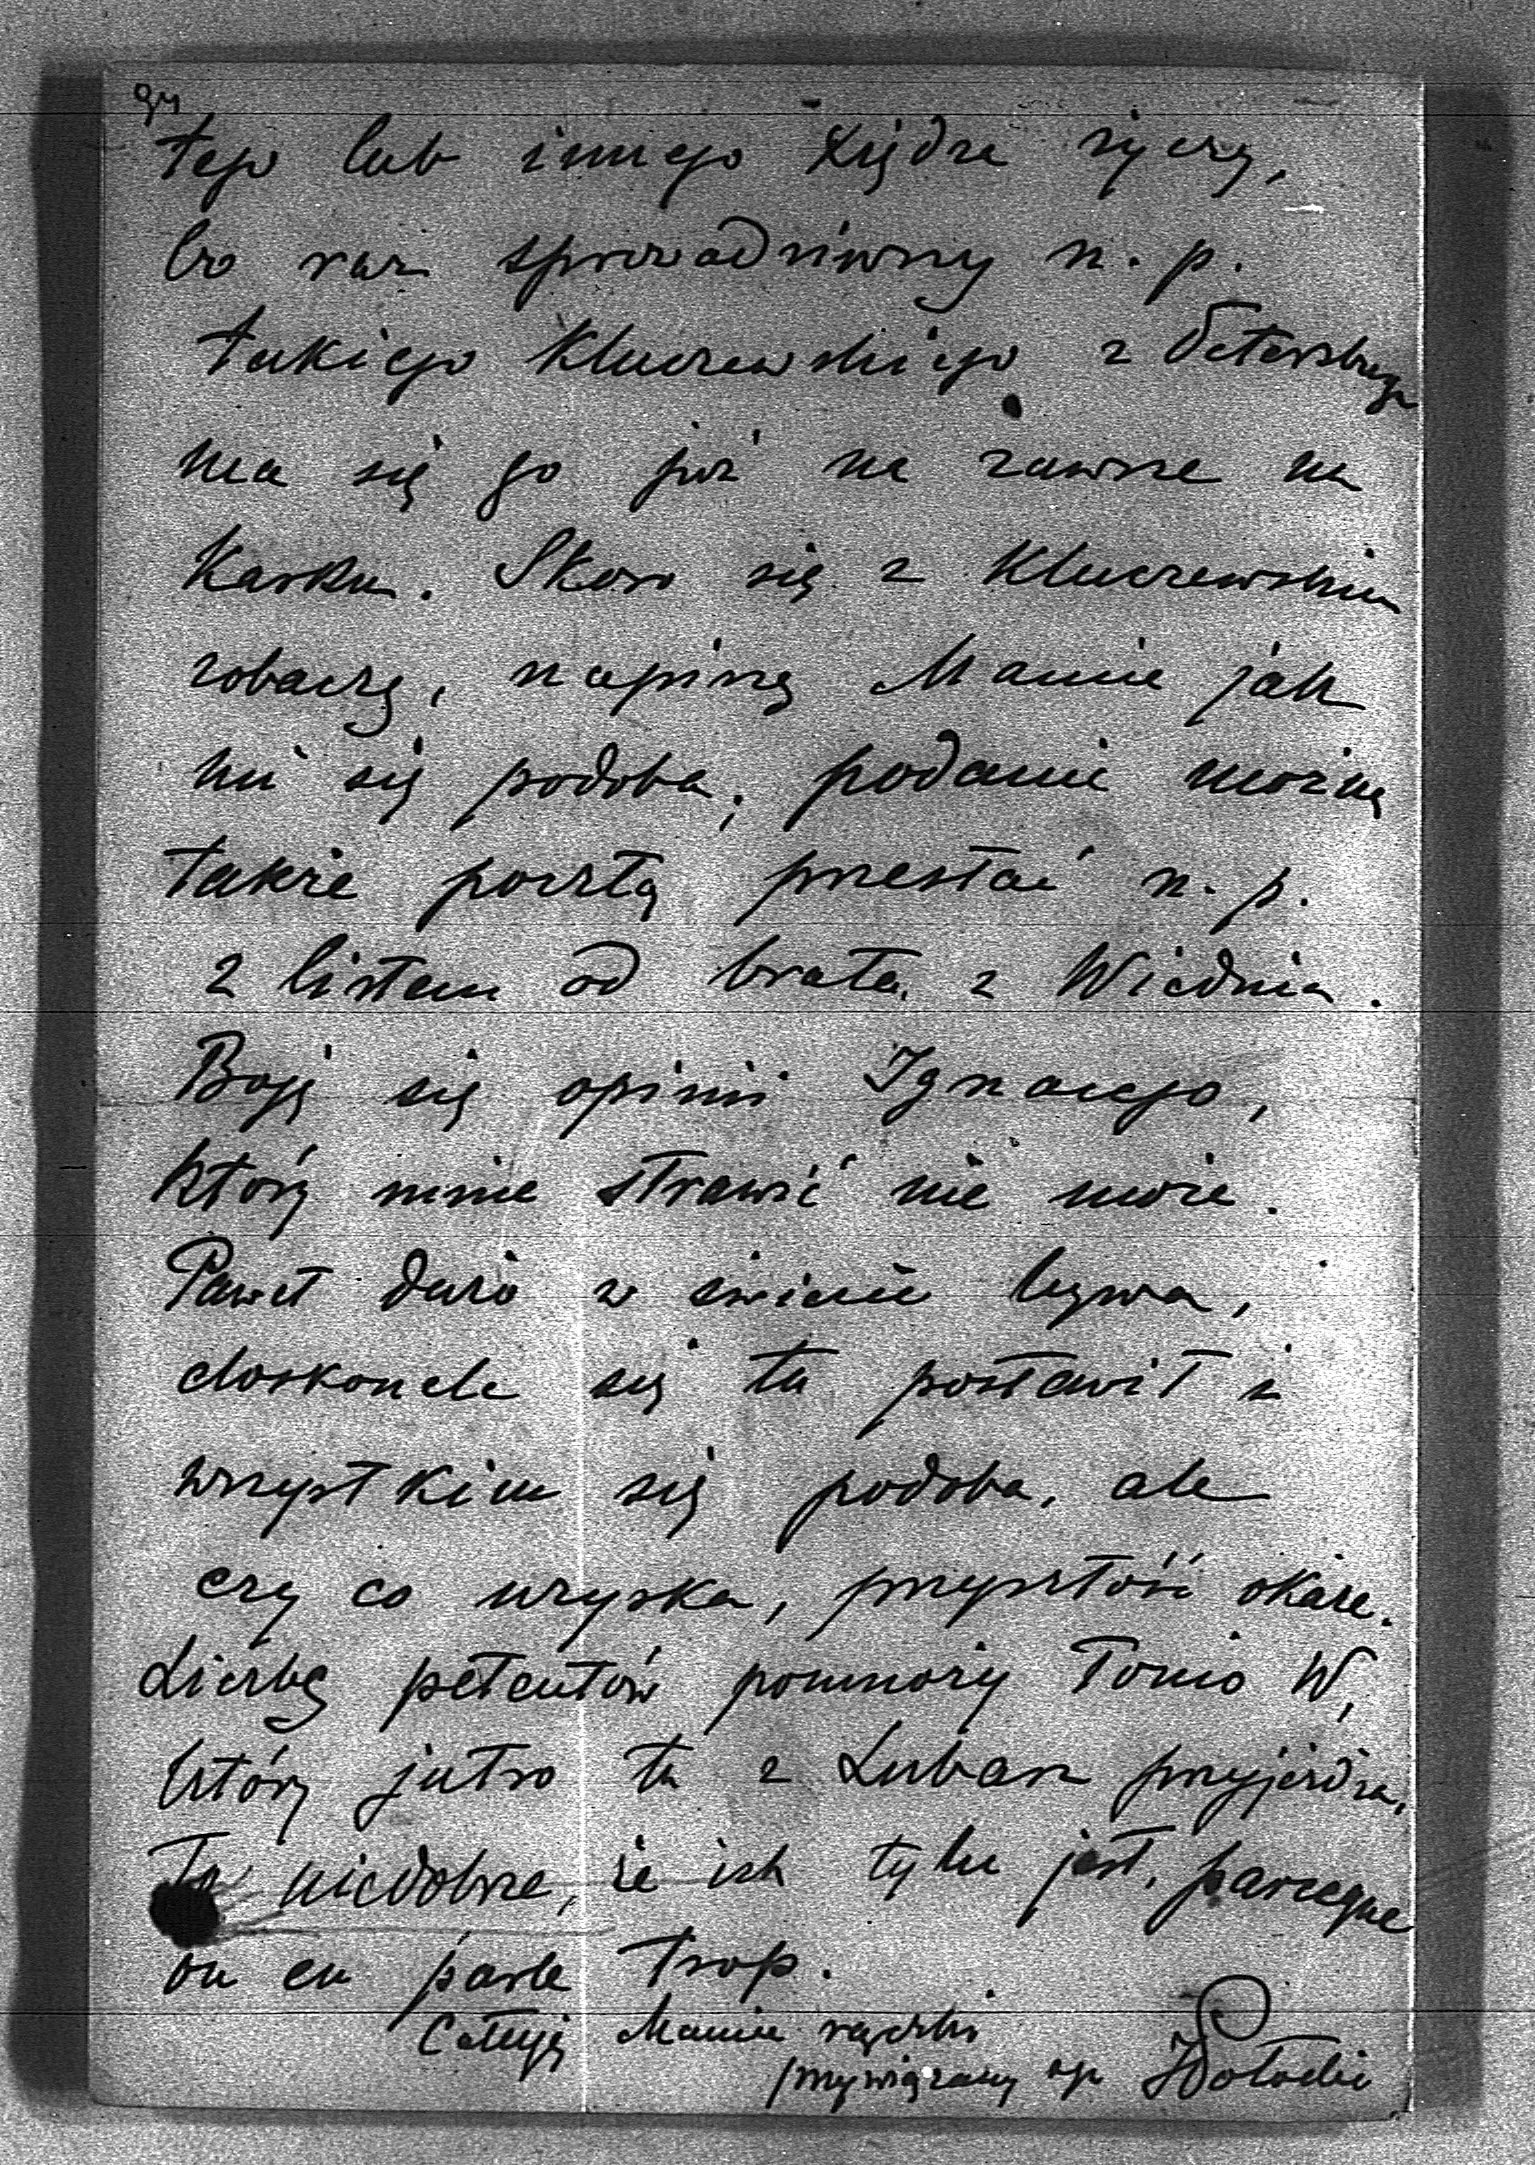 94
tego lub innego Xiędza życzy,
bo raz sprowadziwszy n. p.
takiego Kluczewskiego z Petersburga
ma się go już na zawsze na
Karku. Skoro się z Kluczewskim
zobaczę, napiszę Mamie jak
mi się podoba, podanie można
także pocztą przesłać n. p.
z listem od brata z Wiednia.
Boję się opinii Ignacego,
który mnie strawić nie może.
Paweł dużo w świecie bywa,
doskonale się tu postawił i
wszystkim się podoba, ale
czy co uzyska, przyszłość okaże.
Liczbę petentów pomnoży Tonio W,
który jutro tu z Lubar przyjeżdża.
To niedobrze, że ich tylu jest, parceque
on en parle trop.
Całuję Mamie rączki
przywiązany syn